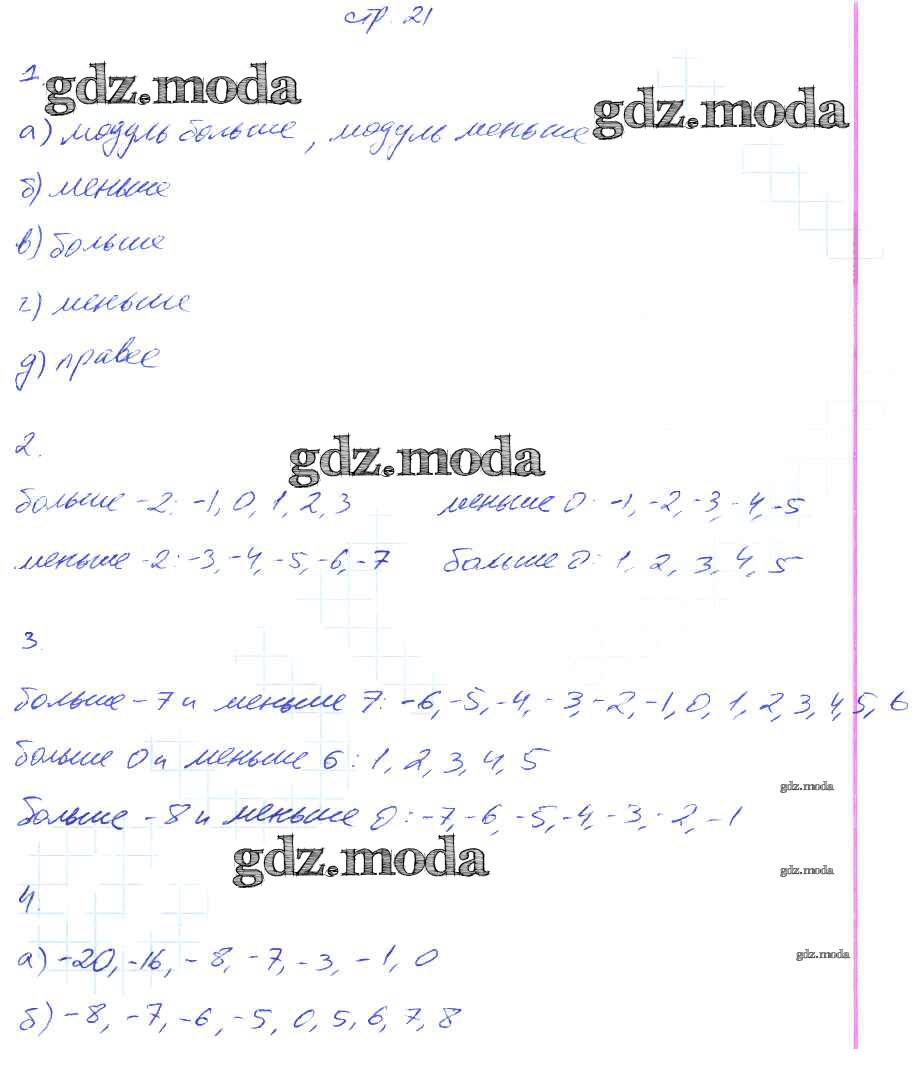 стр. 21
1.
gdz.moda
gdz.moda
а) модуль больше, модуль меньше
б) меньше
в) больше
г) меньше
д) правее
2.
gdz.moda
больше -2: -1, 0, 1, 2, 3 меньше 0: -1, -2, -3, -4, -5
меньше -2: -3, -4, -5, -6, -7 больше 0: 1, 2, 3, 4, 5
3.
больше -7 и меньше 7: -6, -5, -4, -3, -2, -1, 0, 1, 2, 3, 4, 5, 6
больше 0 и меньше 6: 1, 2, 3, 4, 5
gdz.moda
больше -8 и меньше 0: -7, -6, -5, -4, -3, -2, -1
gdz.moda
gdz.moda
4.
а) -20, -16, -8, -7, -3, -1, 0
gdz.moda
б) -8, -7, -6, -5, 0, 5, 6, 7, 8